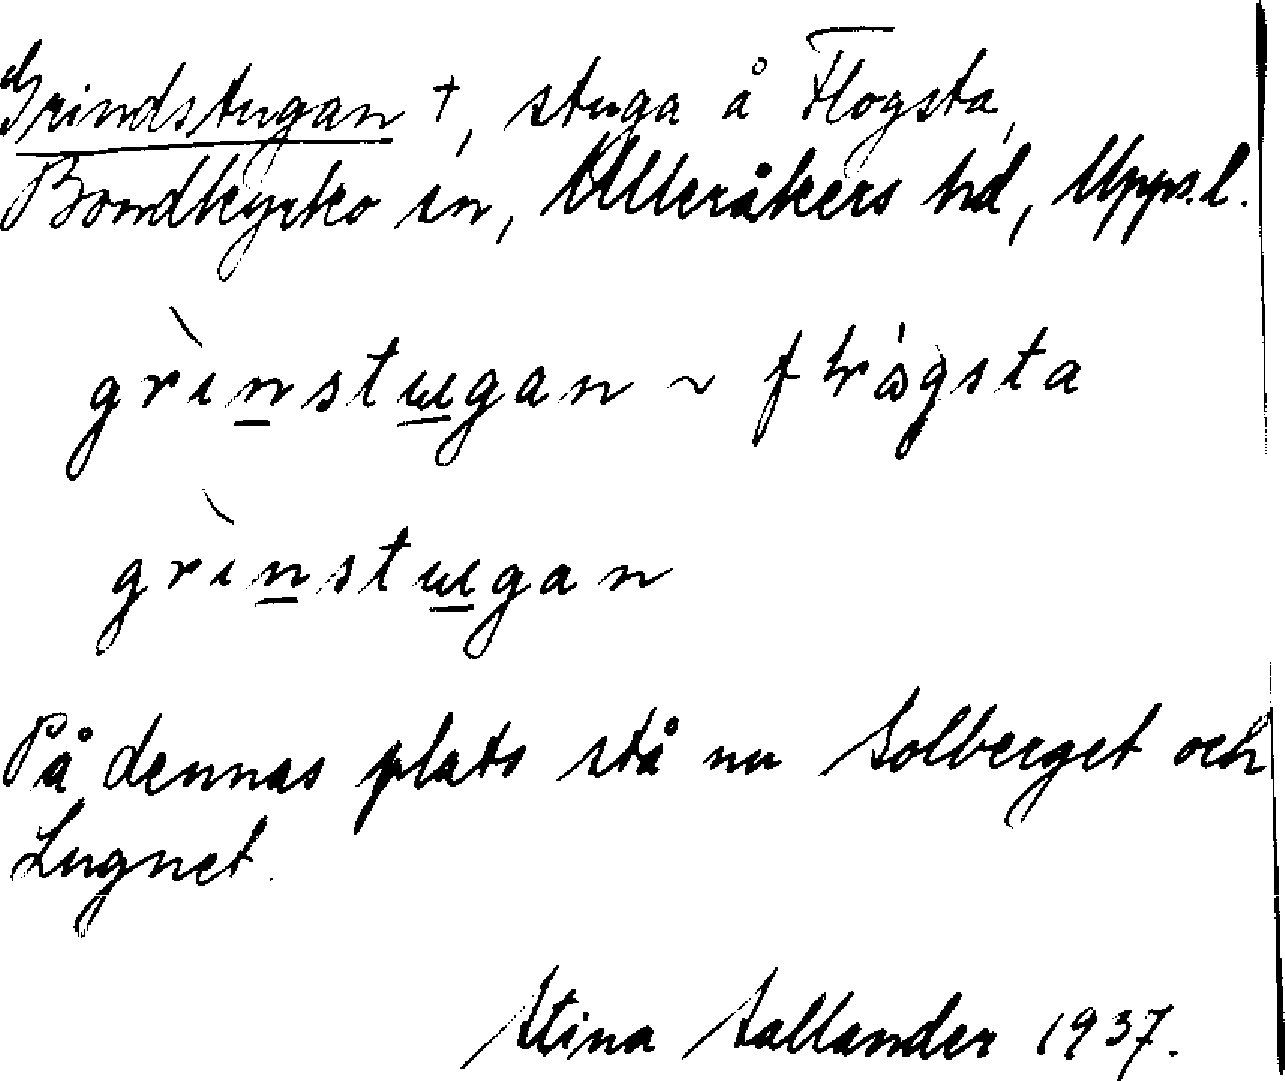 Grindstugan †, stuga å Flogsta,
Bondkyrko sn, Ulleråkers hd, Uppl.
grìnstugan ~ flrógsta
grìnstugan
På dennas plats stå nu Solberget och
Lugnet.
Stina Sallander 1937.